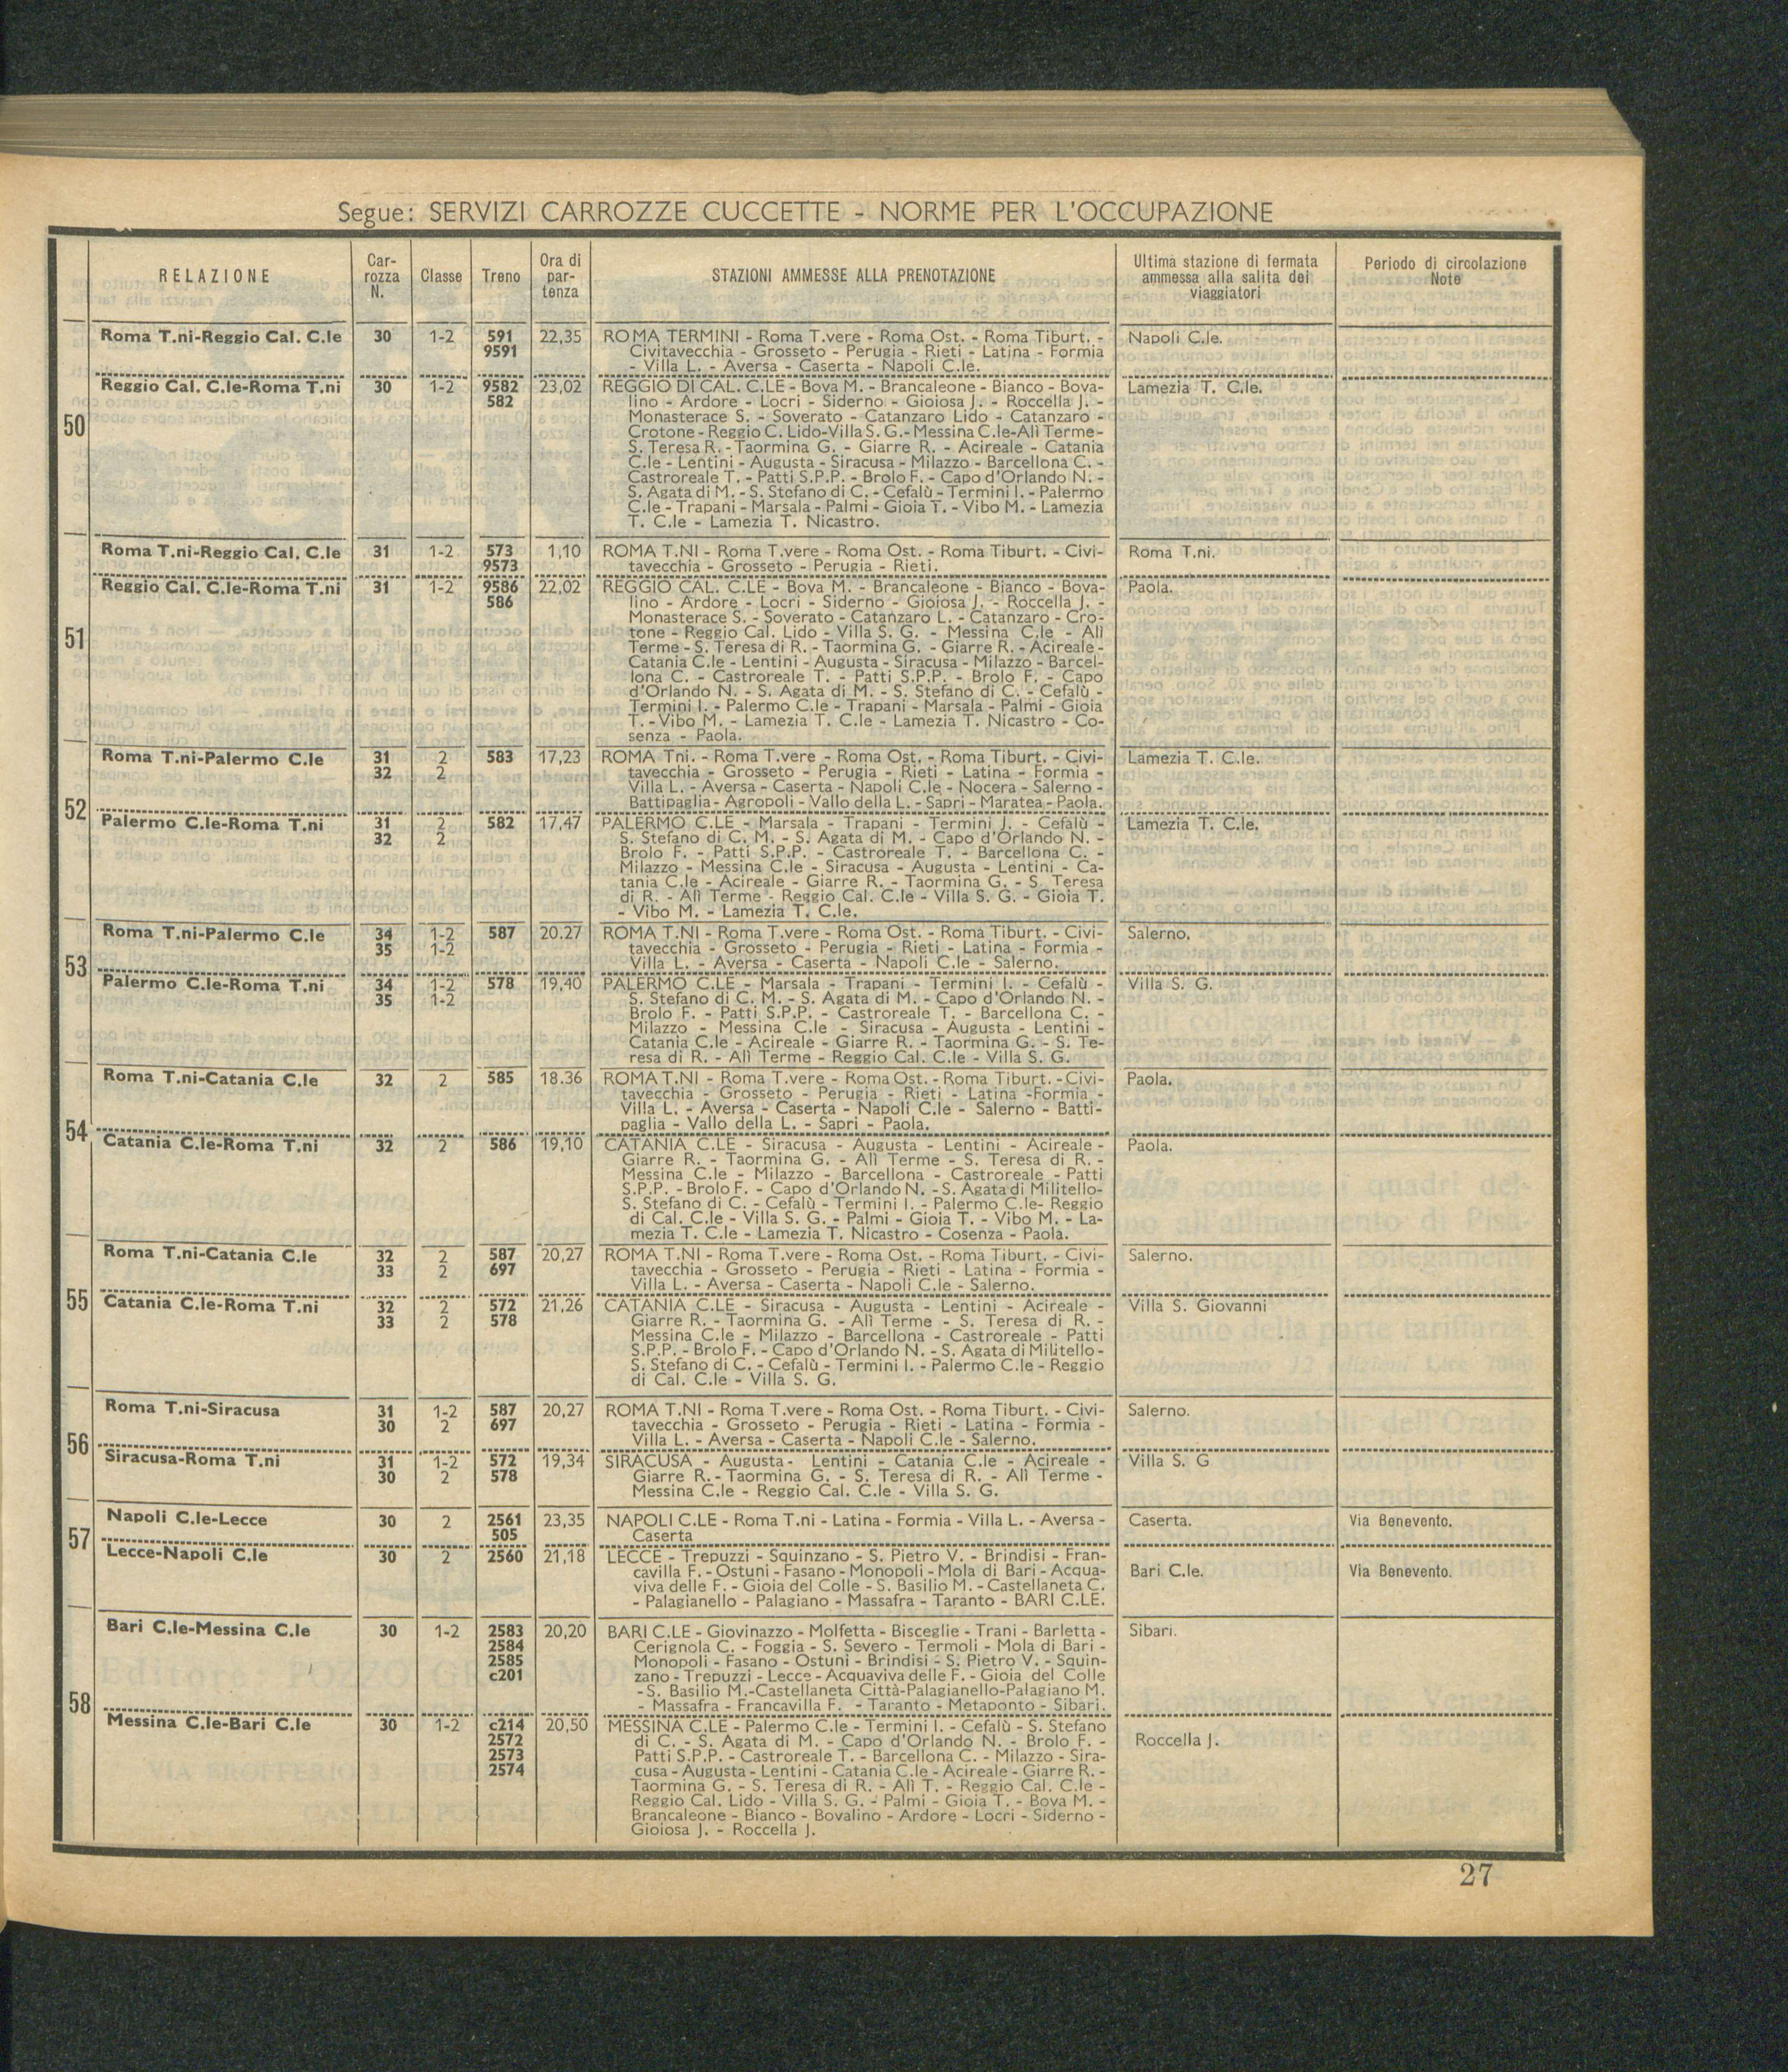 Segue: SERVIZI CARROZZE CUCCETTE - NORME PER L'OCCUPAZIONE
RELAZIONE
Car-
rozza
N.
Classe
Treno
Ora di
par-
tenza
STAZIONI AMMESSE ALLA PRENOTAZIONE
Ultima stazione di fermata
ammessa alla salita dei
viaggiatori
Periodo di circolazione
Note
50
Roma T.ni-Reggio Cal. C.le 30 1-2 591 22,35 ROMA TERMINI - Roma T.vere - Roma Ost. - Roma Tiburt. - Napoli C.le.
9591 Civitavecchia - Grosseto - Perugia - Rieti - Latina - Formia
- Villa L. - Aversa - Caserta - Napoli C.le.
Reggio Cal. C.le-Roma T.ni 30 1-2 9582 23,02 REGGIO DI CAL. C.LE - Bova M. - Brancaleone - Bianco - Bova- Lamezia T. C.le.
582 lino - Ardore - Locri - Siderno - Gioiosa J. - Roccella J. -
Monasterace S. - Soverato - Catanzaro Lido - Catanzaro -
Crotone - Reggio C. Lido-Villa S. G.- Messina C.le-Alì Terme-
S. Teresa R. -Taormina G. - Giarre R. - Acireale - Catania
C.le - Lentini - Augusta - Siracusa - Milazzo - Barcellona C. -
Castroreale T. - Patti S.P.P. - Brolo F. - Capo d'Orlando N. -
S. Agata di M. - S. Stefano di C. - Cefalù - Termini I. - Palermo
C.le - Trapani - Marsala - Palmi - Gioia T. - Vibo M. - Lamezia
T. C.le - Lamezia T. Nicastro.
51
Roma T.ni-Reggio Cal. C.le 31 1-2 573 1,10 ROMA T.NI - Roma T.vere - Roma Ost. - Roma Tiburt. - Civi- Roma T.ni.
9573 tavecchia - Grosseto - Perugia - Rieti.
Reggio Cal. C.le-Roma T.ni 31 1-2 9586 22,02 REGGIO CAL. C.LE - Bova M. - Brancaleone - Bianco - Bova- Paola.
586 lino - Ardore - Locri - Siderno - Gioiosa J. - Roccella J. -
Monasterace S. - Soverato - Catanzaro L. - Catanzaro - Cro-
tone - Reggio Cal. Lido - Villa S. G. - Messina C.le - Alì
Terme - S. Teresa di R. - Taormina G. - Giarre R. - Acireale -
Catania C.le - Lentini - Augusta - Siracusa - Milazzo - Barcel-
lona C. - Castroreale T. - Patti S.P.P. - Brolo F. - Capo
d'Orlando N. - S. Agata di M. - S. Stefano di C. - Cefalù -
Termini I. - Palermo C.le - Trapani - Marsala - Palmi - Gioia
T. - Vibo M. - Lamezia T. C.le - Lamezia T. Nicastro - Co-
senza - Paola.
52
Roma T.ni-Palermo C.le 31 2 583 17,23 ROMA Tni. - Roma T.vere - Roma Ost. - Roma Tiburt. - Civi- Lamezia T. C.le.
32 2 tavecchia - Grosseto - Perugia - Rieti - Latina - Formia -
Villa L. - Aversa - Caserta - Napoli C.le - Nocera - Salerno -
Battipaglia- Agropoli - Vallo della L. - Sapri - Maratea - Paola.
Palermo C.le-Roma T.ni 31 2 582 17,47 PALERMO C.LE - Marsala - Trapani - Termini J. - Cefalù - Lamezia T. C.le.
32 2 S. Stefano di C. M. - S. Agata di M. - Capo d'Orlando N. -
Brolo F. - Patti S.P.P. - Castroreale T. - Barcellona C. -
Milazzo - Messina C.le - Siracusa - Augusta - Lentini - Ca-
tania C.le - Acireale - Giarre R. - Taormina G. - S. Teresa
di R. - Alì Terme - Reggio Cal. C.le - Villa S. G. - Gioia T.
- Vibo M. - Lamezia T. C.le.
53
Roma T.ni-Palermo C.le 34 1-2 587 20.27 ROMA T.NI - Roma T.vere - Roma Ost. - Roma Tiburt. - Civi- Salerno.
35 1-2 tavecchia - Grosseto - Perugia - Rieti - Latina - Formia -
Villa L. - Aversa - Caserta - Napoli C.le - Salerno.
Palermo C.le-Roma T.ni 34 1-2 578 19,40 PALERMO C.LE - Marsala - Trapani - Termini I. - Cefalù - Villa S. G.
35 1-2 S. Stefano di C. M. - S. Agata di M. - Capo d'Orlando N. -
Brolo F. - Patti S.P.P. - Castroreale T. - Barcellona C. -
Milazzo - Messina C.le - Siracusa - Augusta - Lentini -
Catania C.le - Acireale - Giarre R. - Taormina G. - S. Te-
resa di R. - Alì Terme - Reggio Cal. C.le - Villa S. G.
54
Roma T.ni-Catania C.le 32 2 585 18.36 ROMA T.NI - Roma T.vere - Roma Ost. - Roma Tiburt. - Civi- Paola.
tavecchia - Grosseto - Perugia - Rieti - Latina -Formia -
Villa L. - Aversa - Caserta - Napoli C.le - Salerno - Batti-
paglia - Vallo della L. - Sapri - Paola.
Catania C.le-Roma T.ni 32 2 586 19,10 CATANIA C.LE - Siracusa - Augusta - Lentini - Acireale - Paola.
Giarre R. - Taormina G. - Alì Terme - S. Teresa di R. -
Messina C.le - Milazzo - Barcellona - Castroreale - Patti
S.P.P. - Brolo F. - Capo d'Orlando N. - S. Agata di Militello-
S. Stefano di C. - Cefalù - Termini I. - Palermo C.le- Reggio
di Cal. C.le - Villa S. G. - Palmi - Gioia T. - Vibo M. - La-
mezia T. C.le - Lamezia T. Nicastro - Cosenza - Paola.
55
Roma T.ni-Catania C.le 32 2 587 20,27 ROMA T.NI - Roma T.vere - Roma Ost. - Roma Tiburt. - Civi- Salerno.
33 2 697 tavecchia - Grosseto - Perugia - Rieti - Latina - Formia -
Villa L. - Aversa - Caserta - Napoli C.le - Salerno.
Catania C.le-Roma T.ni 32 2 572 21,26 CATANIA C.LE - Siracusa - Augusta - Lentini - Acireale - Villa S. Giovanni
33 2 578 Giarre R. - Taormina G. - Alì Terme - S. Teresa di R. -
Messina C.le - Milazzo - Barcellona - Castroreale - Patti
S.P.P. - Brolo F. - Capo d'Orlando N. - S. Agata di Militello -
S. Stefano di C. - Cefalù - Termini I. - Palermo C.le - Reggio
di Cal. C.le - Villa S. G.
56
Roma T.ni-Siracusa 31 1-2 587 20,27 ROMA T.NI - Roma T.vere - Roma Ost. - Roma Tiburt. - Civi- Salerno.
30 2 697 tavecchia - Grosseto - Perugia - Rieti - Latina - Formia -
Villa L. - Aversa - Caserta - Napoli C.le - Salerno.
Siracusa-Roma T.ni 31 1-2 572 19,34 SIRACUSA - Augusta - Lentini - Catania C.le - Acireale - Villa S. G
30 2 578 Giarre R. - Taormina G. - S. Teresa di R. - Alì Terme -
Messina C.le - Reggio Cal. C.le - Villa S. G.
57
Napoli C.le-Lecce 30 2 2561 23,35 NAPOLI C.LE - Roma T.ni - Latina - Formia - Villa L. - Aversa - Caserta. Via Benevento.
505 Caserta
Lecce-Napoli C.le 30 2 2560 21,18 LECCE - Trepuzzi - Squinzano - S. Pietro V. - Brindisi - Fran-
cavilla F. - Ostuni - Fasano - Monopoli - Mola di Bari - Acqua- Bari C.le. Via Benevento.
viva delle F. - Gioia del Colle - S. Basilio M. - Castellaneta C.
- Palagianello - Palagiano - Massafra - Taranto - BARI C.LE.
58
Bari C.le-Messina C.le 30 1-2 2583 20,20 BARI C.LE - Giovinazzo - Molfetta - Bisceglie - Trani - Barletta - Sibari.
2584 Cerignola C. - Foggia - S. Severo - Termoli - Mola di Bari -
2585 Monopoli - Fasano - Ostuni - Brindisi - S. Pietro V. - Squin-
c201 zano - Trepuzzi - Lecce - Acquaviva delle F. - Gioia del Colle
- S. Basilio M.-Castellaneta Città-Palagianello-Palagiano M.
- Massafra - Francavilla F. - Taranto - Metaponto - Sibari.
Messina C.le-Bari C.le 30 1-2 c214 20,50 MESSINA C.LE - Palermo C.le - Termini I. - Cefalù - S. Stefano
2572 di C. - S. Agata di M. - Capo d'Orlando N. - Brolo F. - Roccella J.
2573 Patti S.P.P. - Castroreale T. - Barcellona C. - Milazzo - Sira-
2574 cusa - Augusta - Lentini - Catania C.le - Acireale - Giarre R. -
Taormina G. - S. Teresa di R. - Alì T. - Reggio Cal. C.le -
Reggio Cal. Lido - Villa S. G. - Palmi - Gioia T. - Bova M. -
Brancaleone - Bianco - Bovalino - Ardore - Locri - Siderno -
Gioiosa J. - Roccella J.
27